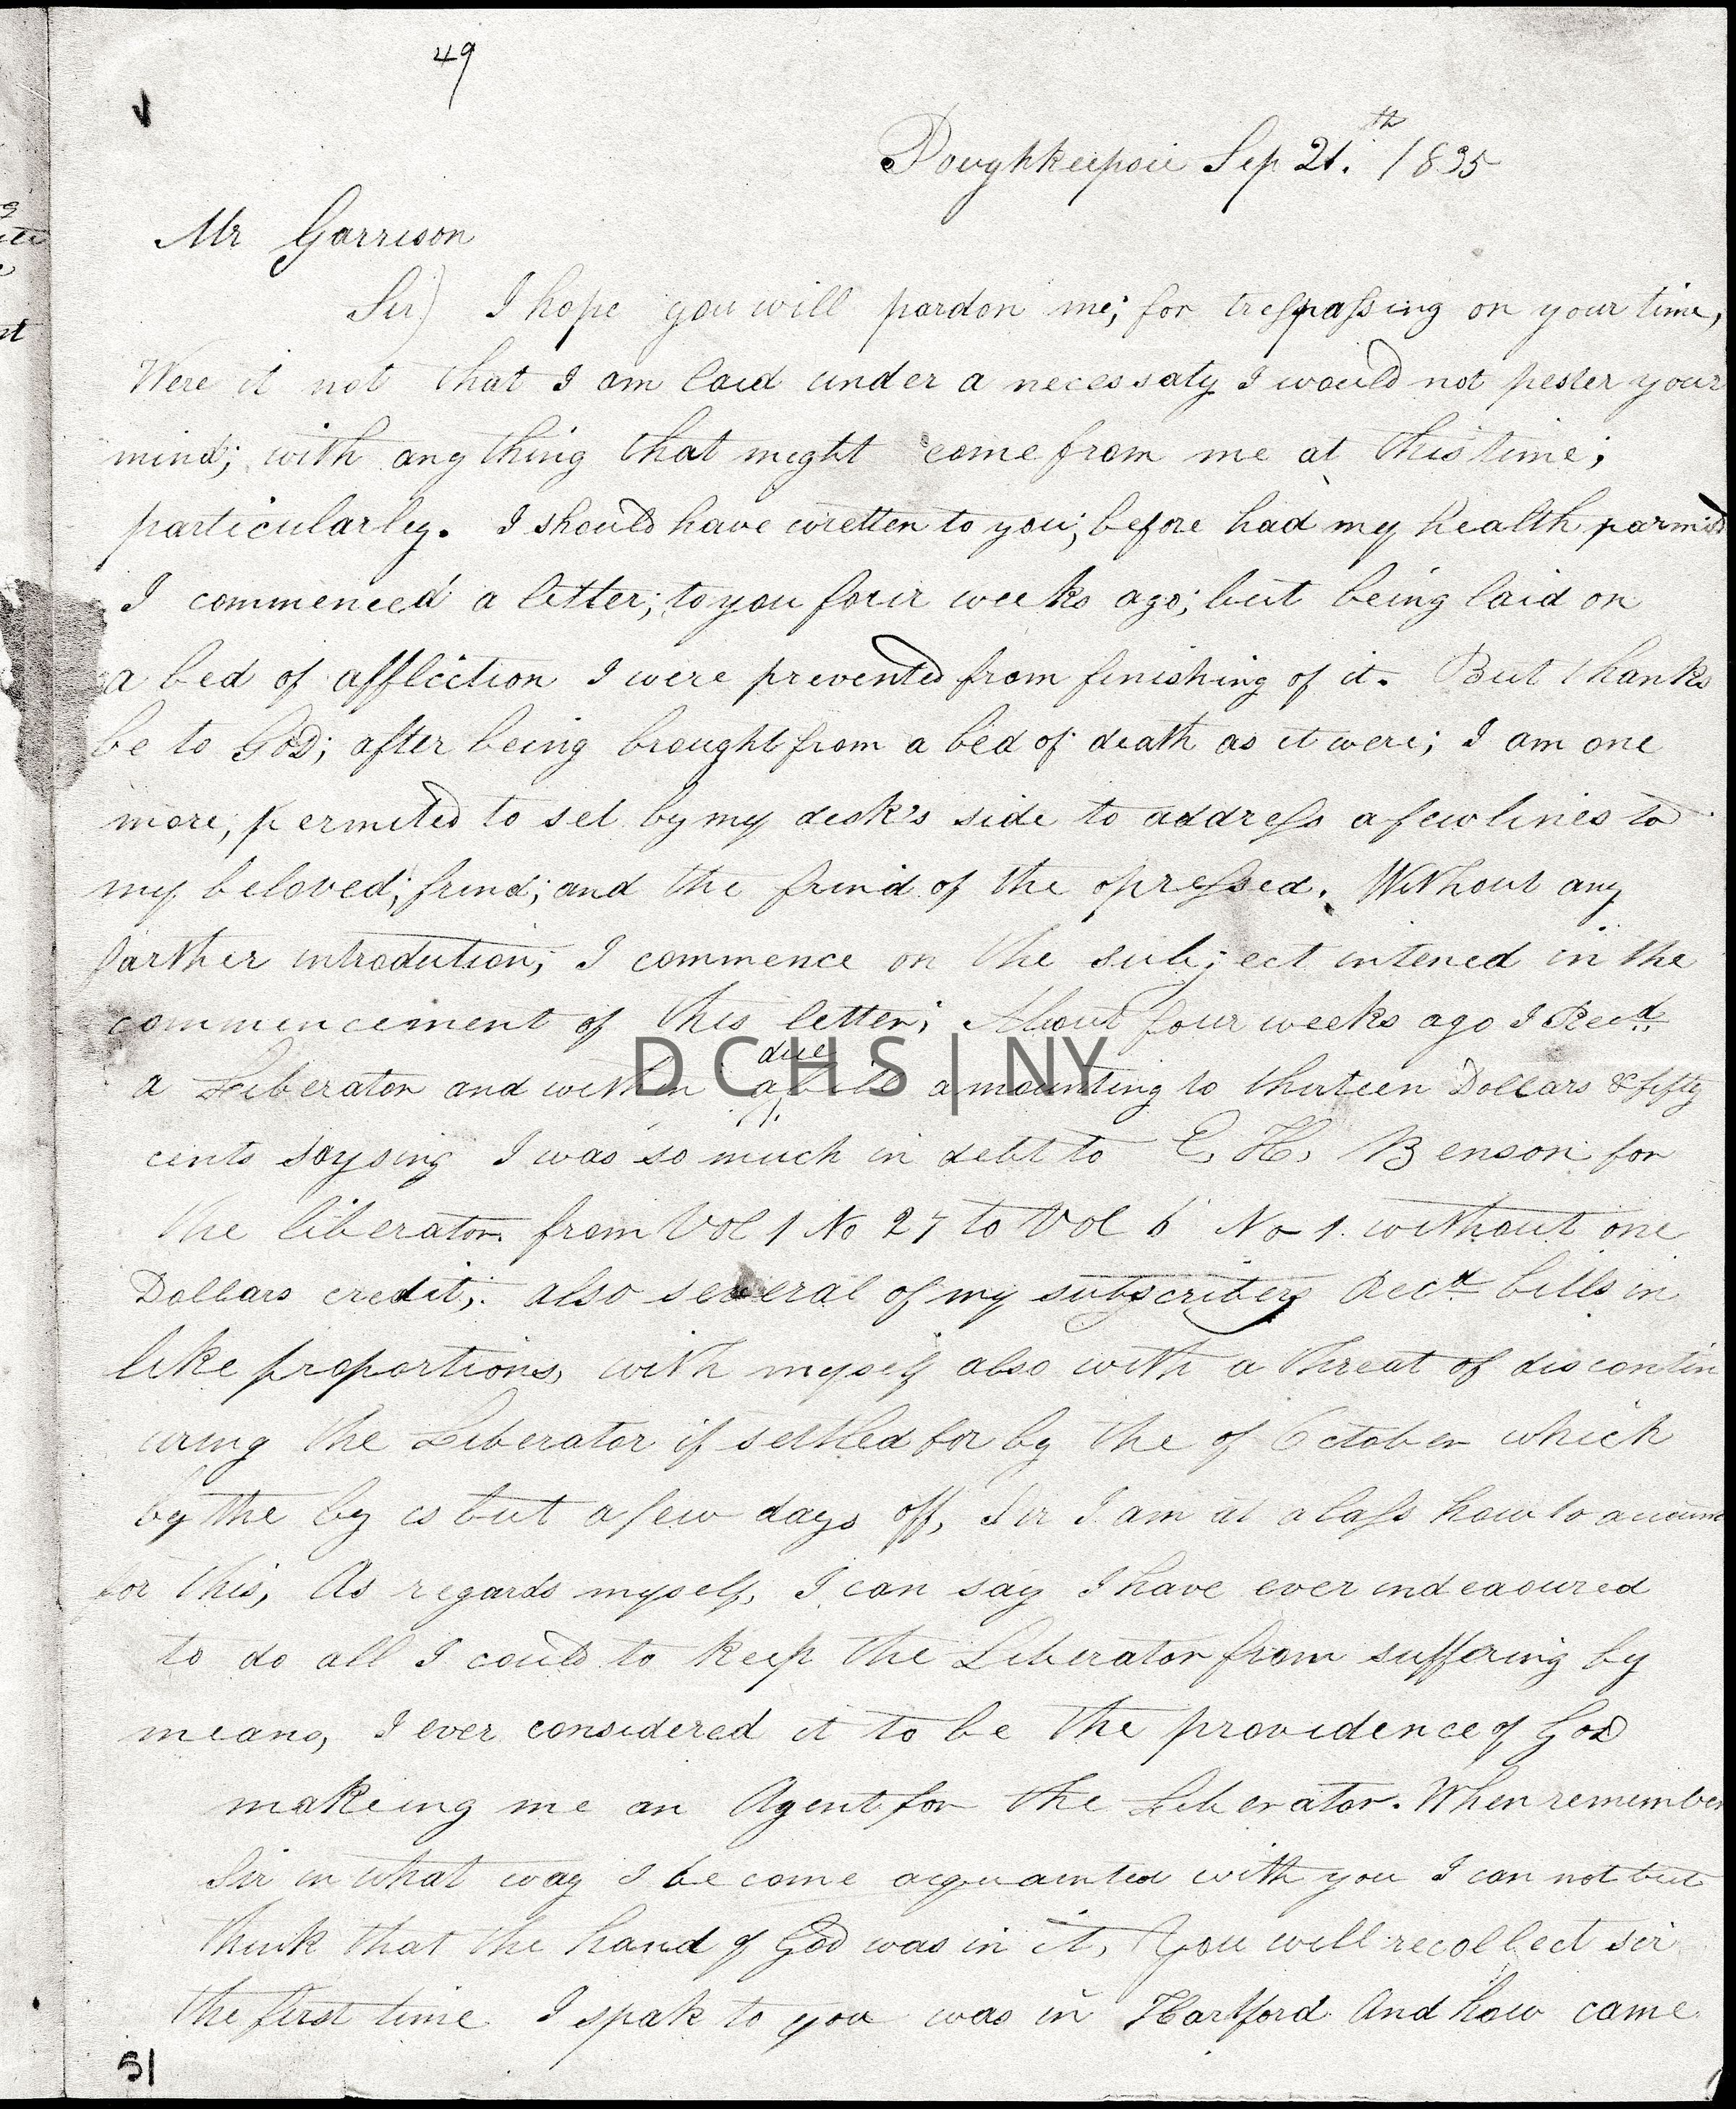 49
Poughkeepsie Sep 21.th 1835
Mr Garrison
Sir) I hope you will pardon me; for trespassing on your time,
Were it not that I am laid under a necessaty I would not pester your
mind; with any thing that might come from me at this time;
particularly. I should have wretten to you; before had my health parmitd
I commenced a letter; to you four weeks ago; but being laid on
a bed of affliction I were prevented from finishing of it. But thanks
be to God; after being brought from a bed of death as it were; I am one
more, permited to set by my desk's side to address a few lines to
my beloved; frind; and the frind of the opressed. Without any
farther introdution; I commence on the subject intened in the
commencement of this letter; About four weeks ago I Recd
due
a Liberator and within a bill amounting to thirteen Dollars & fifty
D C H S | NY
cents saysing I was so much in debt to E, H, Benson for
the liberator. from Vol 1 No 27 to Vol 6 No 1. without one
Dollars credit; also several of my subscribers Recd bills in
like proportions, with myself also with a threat of discontin
uing the Liberator if settled for by the of October which
by the by is but a few days off, Sir I am at a lass how to account
for this, As regards myself, I can say I have ever indeaoured
to do all I could to keep the Liberator from suffering by
means, I ever considered it to be the providence of God
makeing me an Agent for the Liberator. When remember
Sir in what way I become acquainted with you I can not but
think that the hand of God was in it, You will recollect sir
the first time I spak to you was in Hartford And how came
51